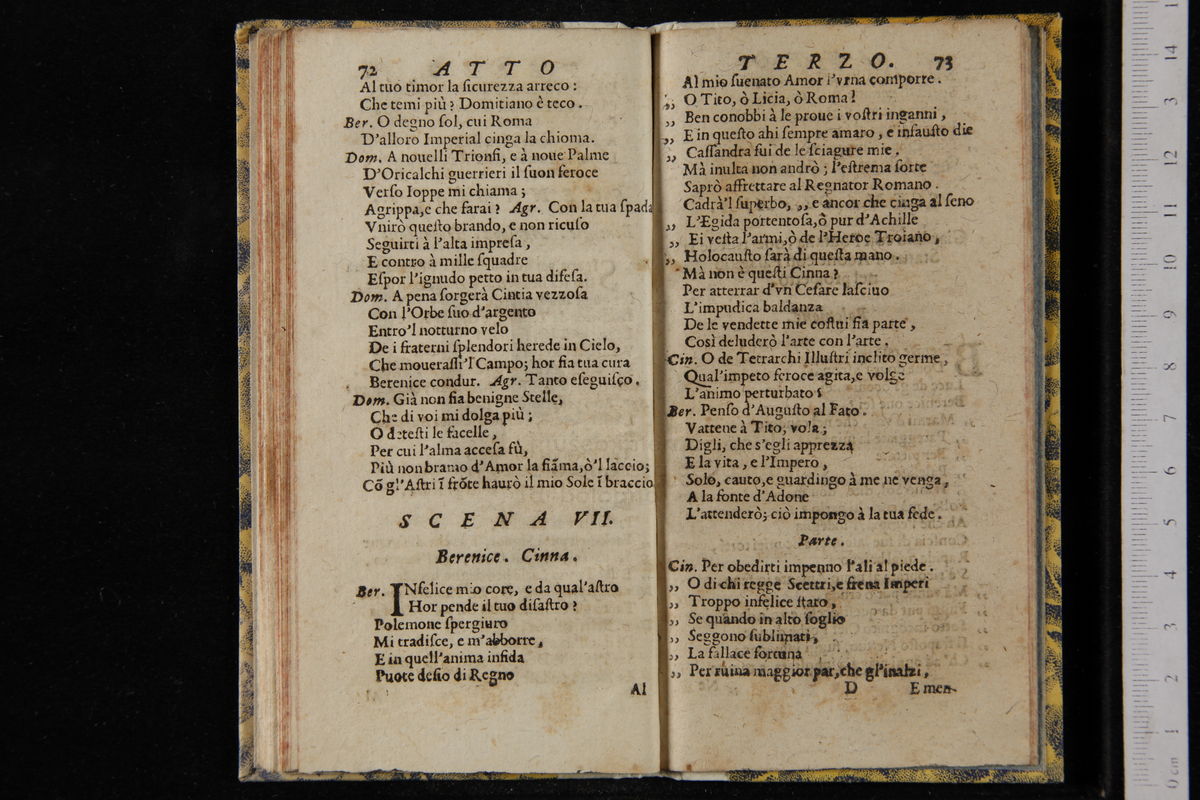 72 ATTO
Al tuo timor la ſicurezza arreco :
Che temi più ? Domitiano è teco .
Ber. O degno ſol, cui Roma
D'alloro Imperial cinga la chioma.
Dom. A nouelli Trionfi, e à noue Palme
D'Oricalchi guerrieri il ſuon feroce
Verſo Ioppe mi chiama ;
Agrippa,e che farai ? Agr. Con la tua ſpada
Vnirò queſto brando, e non ricuſo
Seguirti à l'alta impreſa ,
E contro à mille ſquadre
Eſpor l'ignudo petto in tua difeſa.
Dom. A pena ſorgerà Cintia vezzoſa
Con l'Orbe ſuo d'argento
Entro'l notturno velo
De i fraterni ſplendori herede in Cielo,
Che moueraſſi'l Campo; hor fia tua cura
Berenice condur. Agr. Tanto eſeguiſço .
Dom. Già non fia benigne Stelle,
Che di voi mi dolga più ;
O deteſti le facelle ,
Per cui l'alma acceſa fù,
Più non bramo d'Amor la fiāma,ò'l laccio;
Cō gl'Aſtri ī frōte haurò il mio Sole ī braccio
SCENA VII.
Berenice. Cinna.
Ber. INfelice mio core, e da qual'aſtro
Hor pende il tuo diſaſtro ?
Polemone ſpergiuro
Mi tradiſce, e m'abborre ,
E in quell'anima infida
Puote deſio di Regno
Al
TERZO. 73
Al mio ſuenato Amor l'vrna comporre .
,, O Tito, ò Licia, ò Roma !
,, Ben conobbi à le proue i voſtri inganni ,
,, E in queſto ahi ſempre amaro , e infauſto die
,, Caſſandra fui de le ſciagure mie .
Mà inulta non andrò ; l'eſtrema ſorte
Saprò affrettare al Regnator Romano .
Cadrà'l ſuperbo, ,, e ancor che cinga al ſeno
,, L'Egida portentoſa,ò pur d'Achille
,, Ei veſta l'armi,ò de l'Heroe Troiano ,
,, Holocauſto ſarà di queſta mano .
Mà non è queſti Cinna ?
Per atterrar d'vn Ceſare laſciuo
L'impudica baldanza
De le vendette mie coſtui fia parte ,
Così deluderò l'arte con l'arte .
Cin. O de Tetrarchi Illuſtri inclito germe ,
Qual'impeto feroce agita,e volge
L'animo perturbato ?
Ber. Penſo d'Auguſto al Fato .
Vattene à Tito, vola ;
Digli, che s'egli apprezza
E la vita , e l'Impero ,
Solo, cauto,e guardingo à me ne venga ,
A la fonte d'Adone
L'attenderò; ciò impongo à la tua fede .
Parte.
Cin. Per obedirti impenno l'ali al piede .
,, O di chi regge Scettri,e frena Imperi
,, Troppo infelice ſtato ,
,, Se quando in alto ſoglio
,, Seggono ſublimati ,
,, La fallace fortuna
,, Per ruina maggior par,che gl'inalzi ,
D E men-